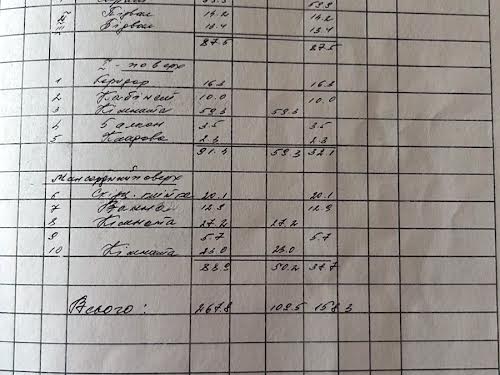 II Підвал 14.2 14.2
III Підвал 13.4
87.5 87.5
I - поверх
1 Коридор 16.3 16.3
2 Кабінет 10.0 10.0
3 Кімната 59.3 59.3
4 Балкон 3.5 3.5
5 2.3 2.3
91.4 59.3 32.1
Мансардний поверх
6 Сх. клітка 20.1 20.1
7 Ванна 12.9 12.9
8 Кімната 27.2 27.2
9 5.7 5.7
10 Кімната 23.0 23.0
88.9 50.2
Всього: 267.8 109.5 158.3